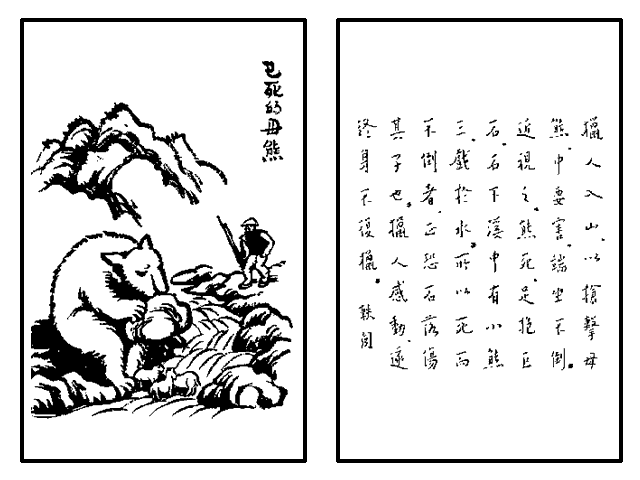 已死的母熊
獵人入山、以槍擊母
熊、中要害、端坐不倒。
近視之。熊死、足抱巨
石。石下溪中有小熊
三、戲於水。所以死而
不倒者、正恐石落傷
其子也。獵人感動、遂
終身不復獵。 軼聞